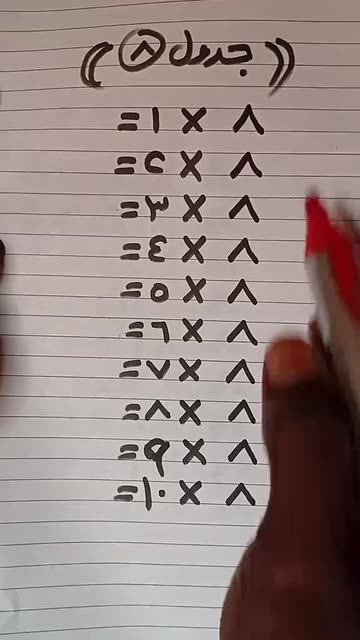 ((جدول ٨))
٨ × ١ =
٨ × ٢ =
٨ × ٣ =
٨ × ٤ =
٨ × ٥ =
٨ × ٦ =
٨ × ٧ =
٨ × ٨ =
٨ × ٩ =
٨ × ١٠ =